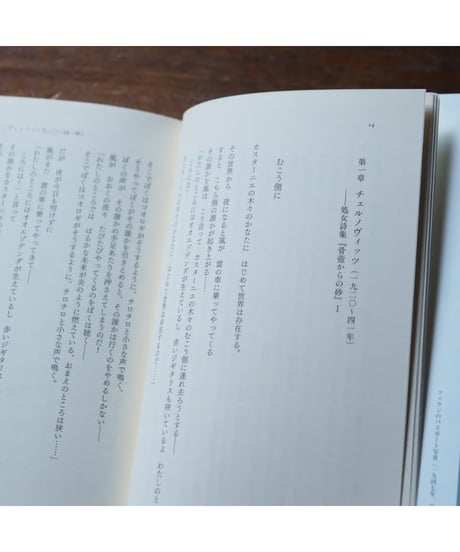 ツェランのパスポート写真（一九四七年、
第一章　チェルノヴィッツ（一九二〇〜四一年）
——処女詩集『骨壺からの砂』Ⅰ
むこう側に
カスターニエの木々のかなたに　はじめて世界は存在する。
その世界から　夜になると風が　雲の車に乗ってやってくる
すると　こちら側の誰かが起き上がる……
その誰かを風は　こう言って、カスターニエの木々のむこう側に連れ去ろうとする——
「わたしのところにはオオエゾデンダが生えているし　赤いジギタリスも咲いているよ　わたしのと
そこでぼくはコオロギがそうするように、チロチロと小さな声で鳴く。
そうやってぼくがその誰かを引きとめると、その誰かは行くのをやめるしかない——
ぼくの声が　その誰かの手足あたりを押さえてしまうのだ！
風が　おおくの夜々　もどってくるのをぼくは聴く——
「わたしのところでは　はるかな未来が炎のように燃えている、おまえのところは狭い……」
そこでぼくはコオロギがそうするように、チロチロと小さな声で鳴く。
だが　夜が今日も明けず
風がまた　雲の車に乗ってやってきて——
「わたしのところにはオオエゾデンダが生えているし　赤いジギタリス